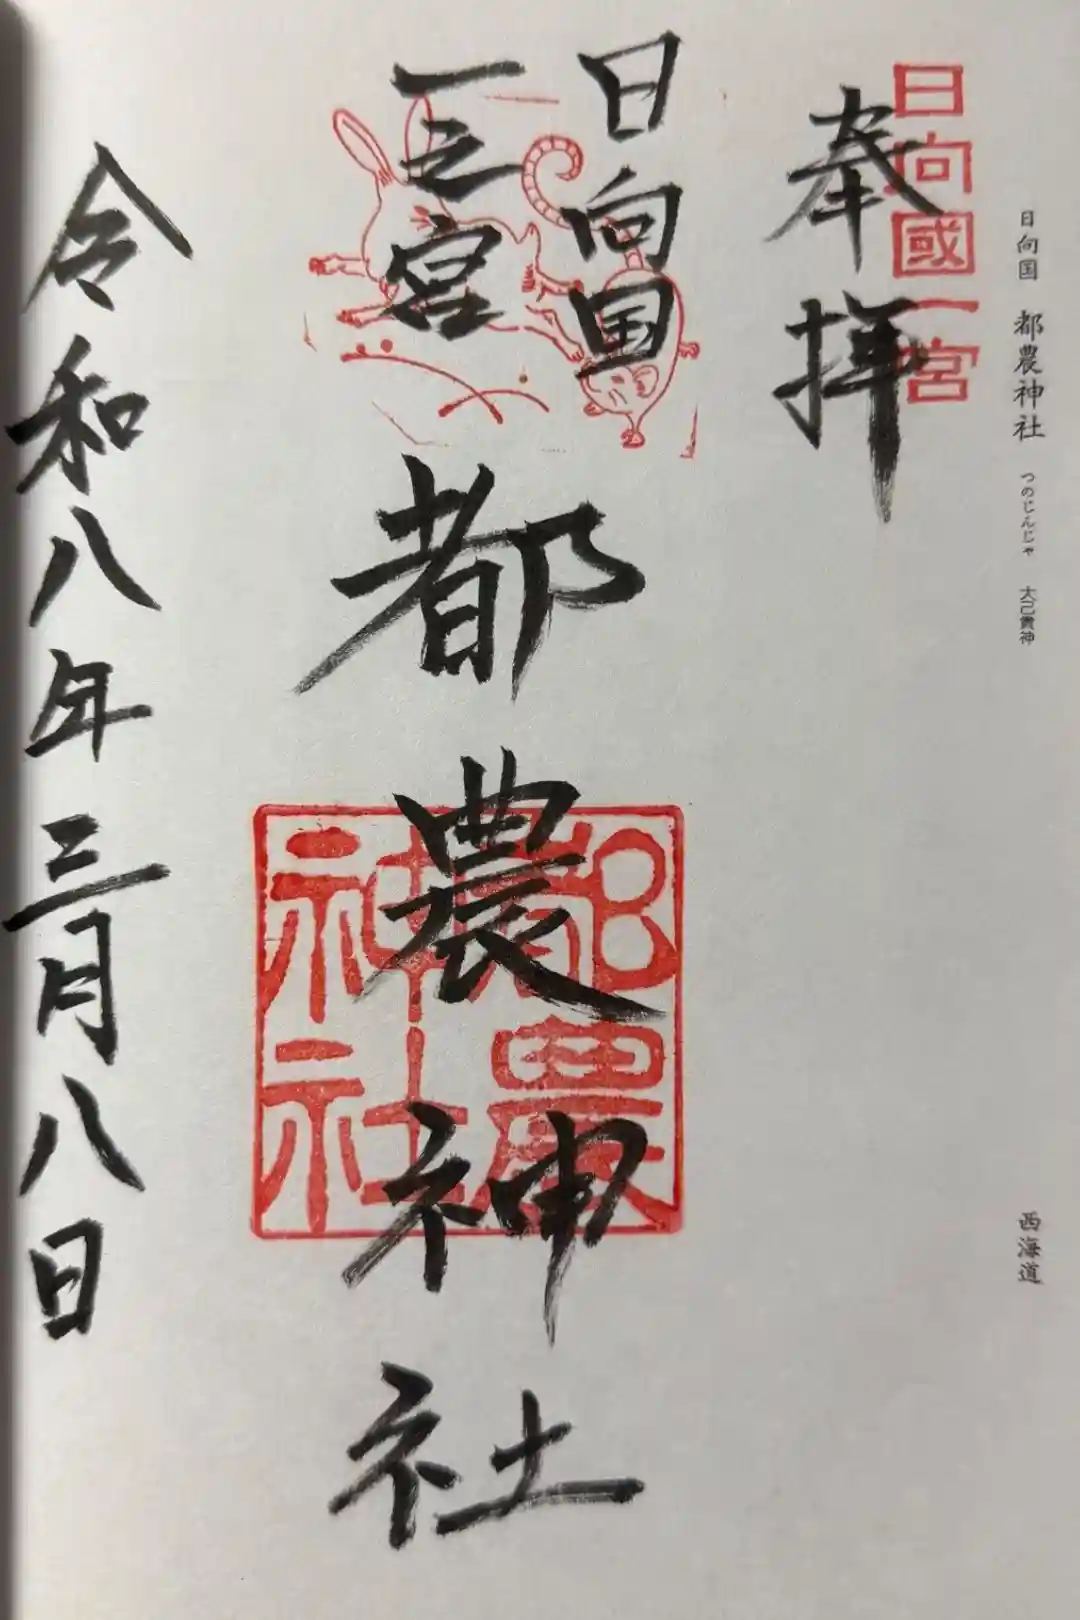 日向国 都農神社 つのじんじゃ 大己貴神
西海道
日向國一宮
奉拝
日向国
一之宮
都農神社
都農神社
令和八年三月八日